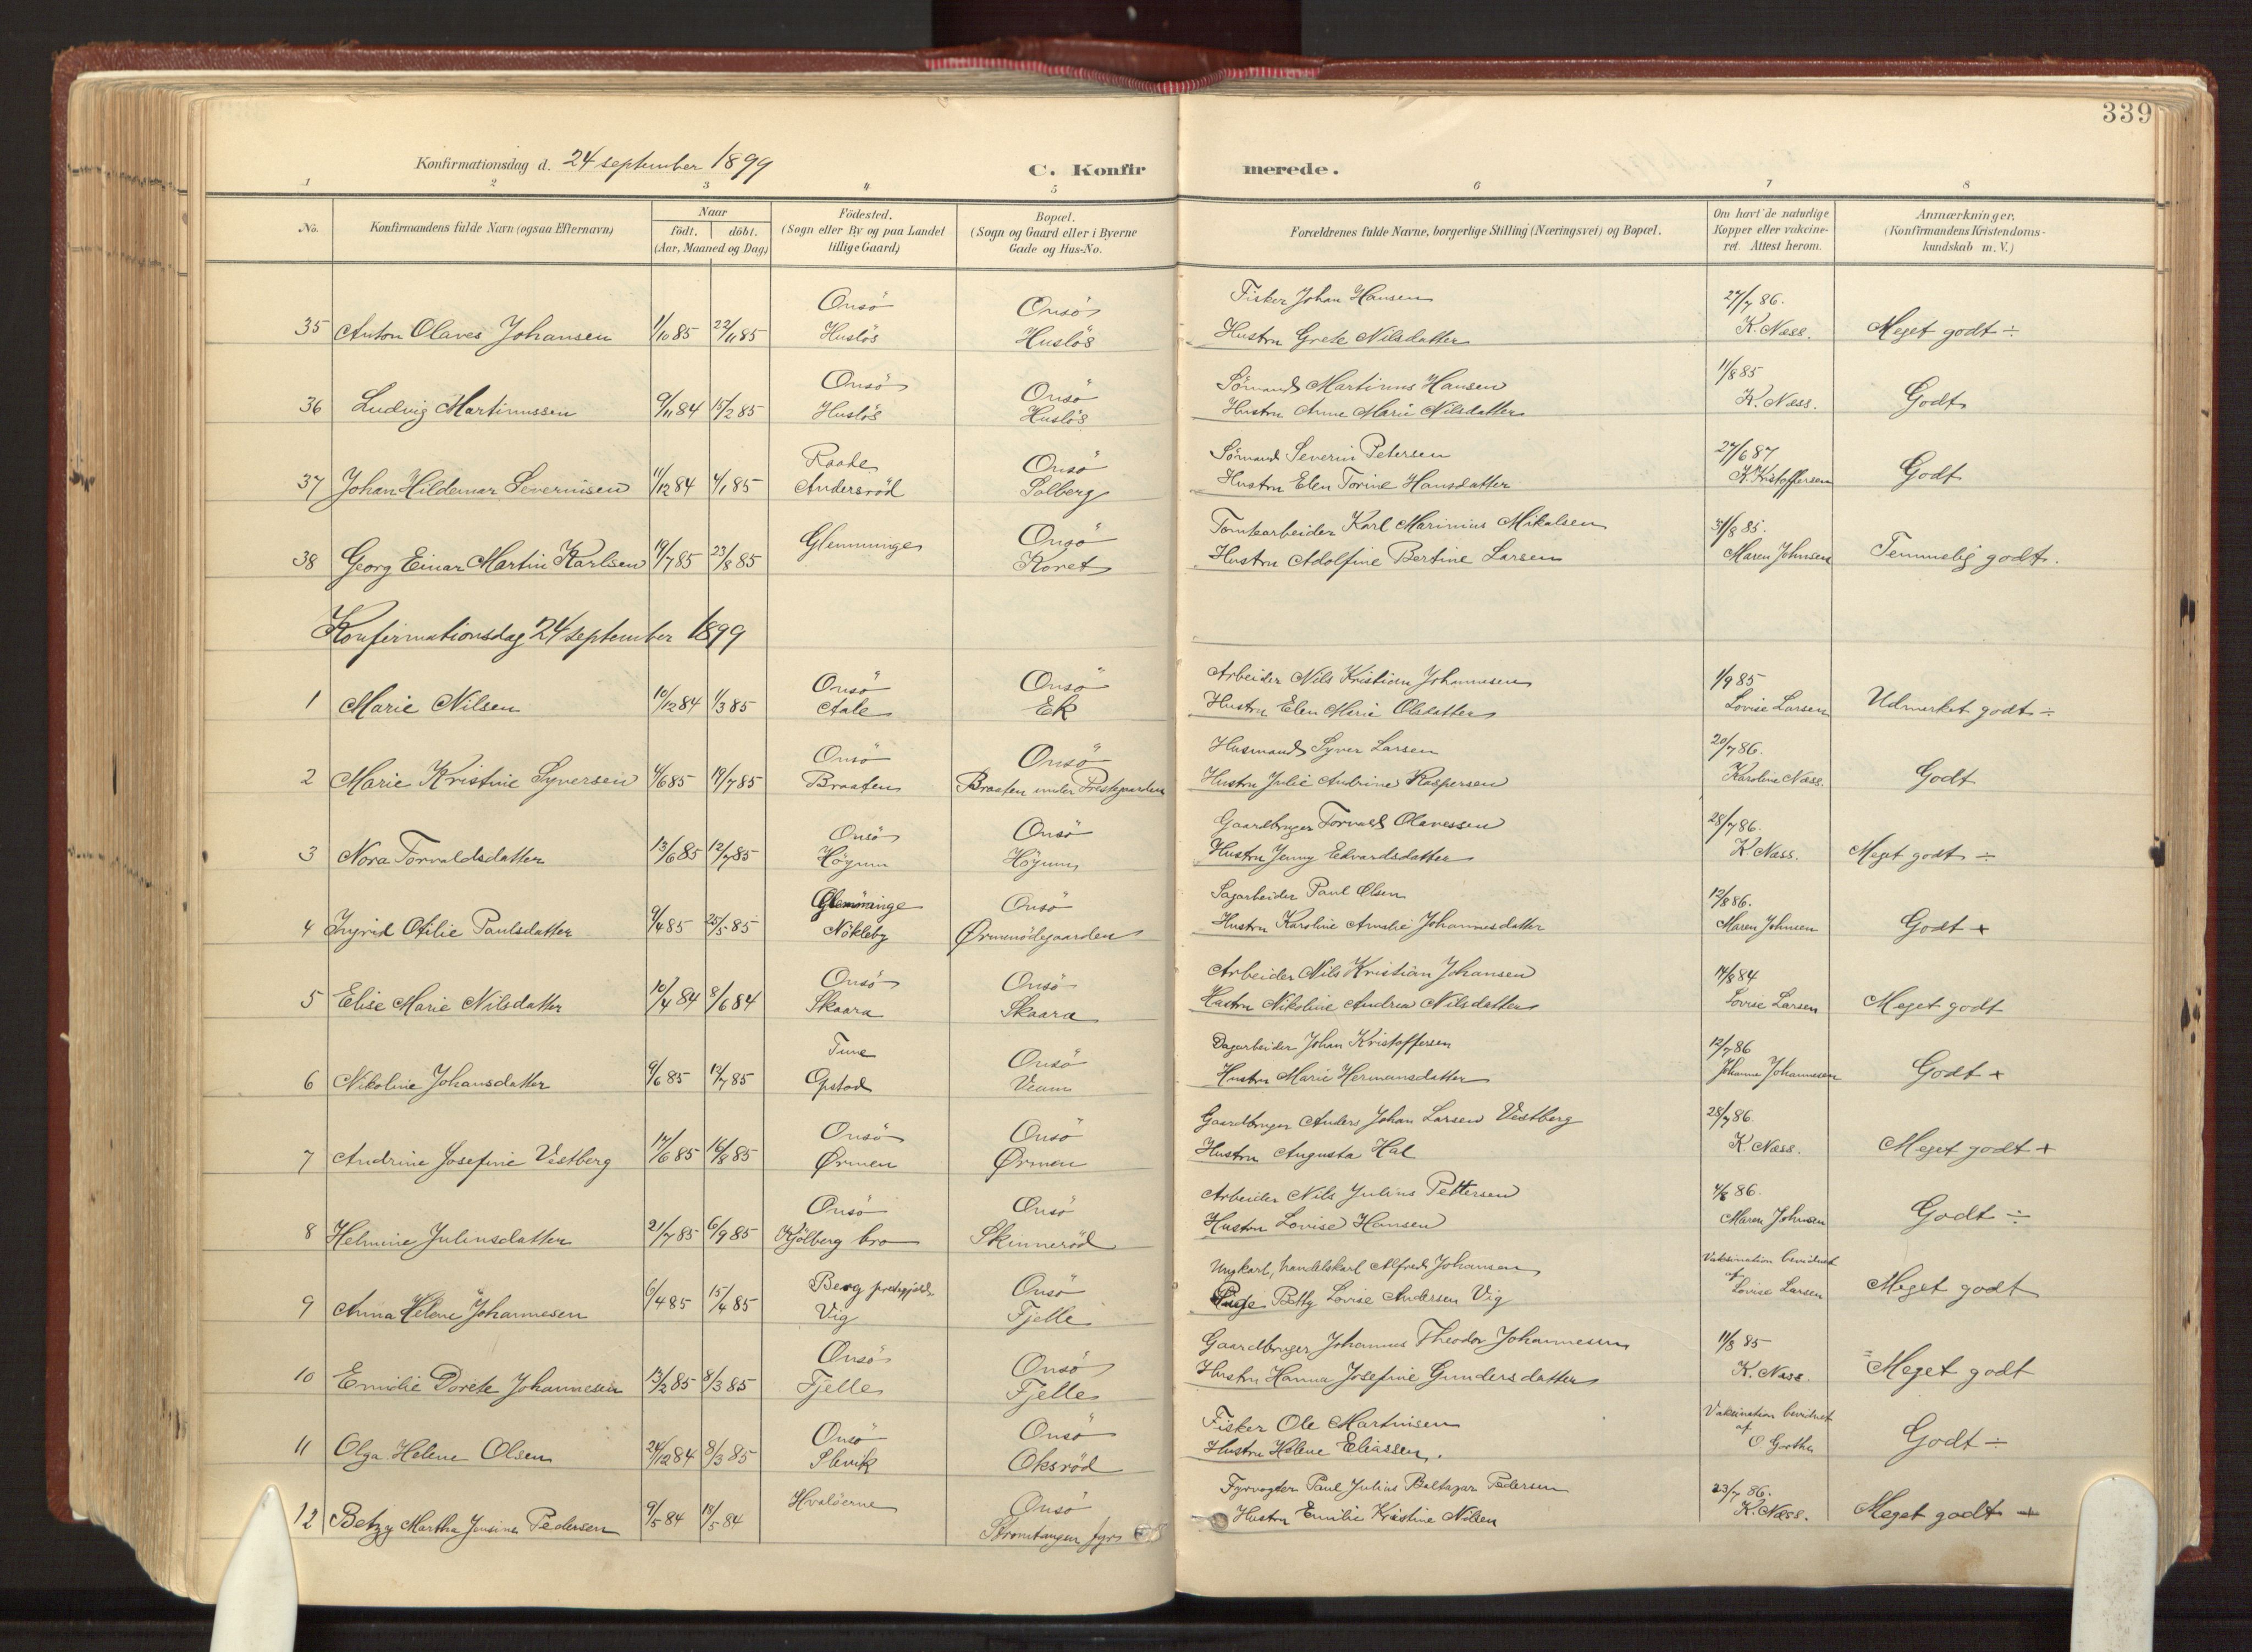 339
Konfirmationsdag d. 24 september 1899
C. Konfirmerede.
1 2 3 4 5 6 7 8
No.
Konfirmandens fulde Navn (ogsaa Efternavn)
Naar
födt. döbt.
(Aar, Maaned og Dag)
Födested.
(Sogn eller By og paa Landet
tillige Gaard)
Bopæl.
(Sogn og Gaard eller i Byerne
Gade og Hus-No.
Forældrenes fulde Navne, borgerlige Stilling (Næringsvei) og Bopæl.
Om havt de naturlige
Kopper eller vakcine-
ret. Attest herom.
Anmærkninger.
(Konfirmandens Kristendoms-
kundskab m. V.)
Onsö Onsö Fisker Johan Hansen 27/7 86.
35 Anton Olaves Johansen 1/10 85 22/11 85 Huslös Huslös Hustru Grete Nilsdatter K. Næss. Meget godt ÷
Onsö Onsö Sömand Martinus Hansen 11/8 85
36 Ludvig Martinussen 9/11 84 15/2 85 Huslös Huslös Hustru Anne Marie Nilsdatter K. Næss. Godt
Raade Onsö Sömand Severin Petersen 27/6 87
37 Johan Hildemar Severinsen 11/12 84 4/1 85 Andersröd Solberg Hustru Elen Torine Hansdatter K. Kristoffersen Godt
Glemminge Onsö Tomtearbeider Karl Marinius Mikalsen 31/8 85.
38 Georg Einar Martin Karlsen 19/7 85 23/8 85 Koret Hustru Adolfine Bertine Larsen Maren Johnsen Temmelig godt.
Konfirmationsdag 24 september 1899
Onsö Onsö Arbeider Nils Kristian Johannesen 1/9 85
1 Marie Nilsen 10/12 84 1/3 85 Aale Ek Hustru Elen Marie Olsdatter Lovise Larsen Udmerket godt ÷
Onsö Onsö Husmand Syver Larsen 20/7 86.
2 Marie Kristine Syversen 4/6 85 19/7 85 Braaten Braaten under Prestegaarden Hustru Julie Andrine Kaspersen Karoline Næss. Godt
Onsö Onsö Gaardbruger Torvald Olavessen 28/7 86.
3 Nora Torvaldsdatter 13/6 85 12/7 85 Högum Högum Hustru Jenny Edvardsdatter K. Næss. Meget godt ÷
Glemminge Onsö Sagarbeider Paul Olsen 12/8 86.
4 Ingrid Otilie Paulsdatter 9/4 85 25/5 85 Nökleby Ørmenödegaarden Hustru Karoline Amalie Johannesdatter Maren Johnsen Godt +
Onsö Onsö Arbeider Nils Kristian Johansen 14/8 84
5 Elise Marie Nilsdatter 10/4 84 8/6 84 Skaara Skaara Hustru Nikoline Andrea Nilsdatter Lovise Larsen Meget godt
Tune Onsö Dagarbeider Johan Kristoffersen 12/7 86
6 Nikoline Johansdatter 9/6 85 12/7 85 Opstad Veum Hustru Marie Hermansdatter Johanne Johannesen Godt +
Onsö Onsö Gaardbruger Anders Johan Larsen Vestberg 28/7 86.
7 Andrine Josefine Vestberg 17/6 85 16/8 85 Ørmen Ørmen Hustru Augusta Hal K. Næss. Meget godt +
Onsö Onsö Arbeider Nils Julius Pettersen 4/8 86.
8 Helmine Juliusdatter 21/7 85 6/9 85 Kjölberg bro Skinneröd Hustru Lovise Hansen Maren Johnsen Godt ÷
Berg Onsö Ungkarl, handelskarl Alfred Johansen Vaksination bevidnet
9 Anna Helene Johannesen 6/4 85 15/4 85 Vig Fjelle Pige Betty Lovise Andersen Vig af Lovise Larsen Meget godt
Onsö Onsö Gaardbruger Johannes Theodor Johannesen 11/8 85
10 Emilie Dorete Johannesen 13/2 85 8/3 85 Fjelle Fjelle Hustru Hanna Josefine Gundersdatter K. Næss. Meget godt
Onsö Onsö Fisker Ole Martinisen Vaksination bevidnet
11 Olga Helene Olsen 24/12 84 8/3 85 Slevik Oksröd Hustru Helene Eliassen. af O. Grothe Godt ÷
Hvalöerne Onsö Fyrvogter Paul Julius Baltazar Pedersen 23/7 86.
12 Betzy Martha Jensine Pedersen 9/5 84 18/5 84 Strömtangen fyr Hustru Emilie Kristine Nilsen K. Næss. Meget godt +